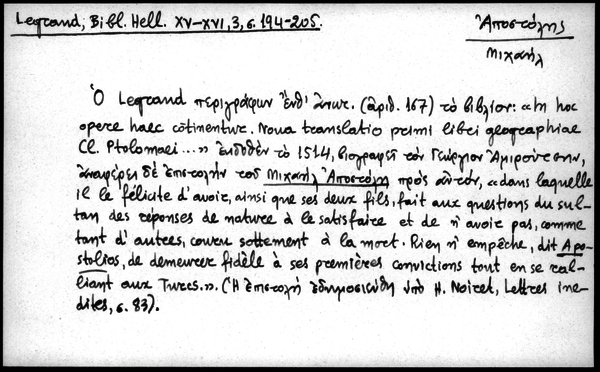 Legrand, Bibl. Hell. XV-XVI, 3, σ. 194-205.
Ἀποστόλης
Μιχαήλ
Ὁ Legrand περιγράφων ἐνθ' ἀνωτ. (ἀριθ. 167) τὸ βιβλίον: «In hoc
opere haec cōtinentur. Noua translatio primi libri geographiae
Cl. Ptolomaei ...» ἐκδοθὲν τὸ 1514, βιογραφεῖ τὸν Γεώργιον Ἀμιρούτσην,
ἀναφέρει δὲ ἐπιστολὴν τοῦ Μιχαὴλ Ἀποστόλη πρὸς αὐτόν, «dans laquelle
il le félicite d'avoir, ainsi que ses deux fils, fait aux questions du sul-
tan des réponses de nature à le satisfaire et de n'avoir pas, comme
tant d'autres, couru sottement à la mort. Rien n'empêche, dit Apo-
stolios, de demeurer fidèle à ses premières convictions tout en se ral-
liant aux Turcs.». (Ἡ ἐπιστολὴ ἐδημοσιεύθη ὑπὸ H. Noiret, Lettres iné-
dites, σ. 83).